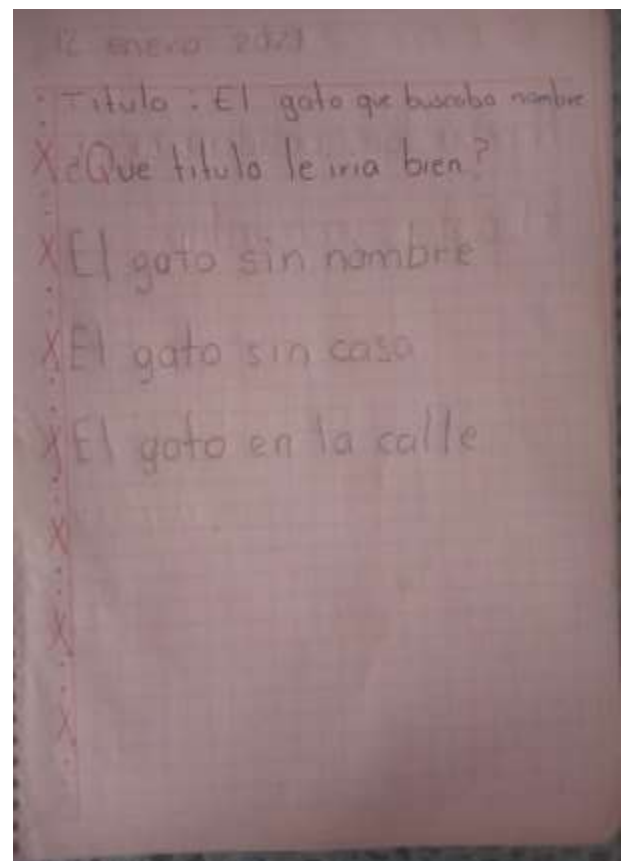 12 enero 2023
Titulo : El gato que buscaba nombre
¿Que titulo le iria bien?
El gato sin nombre
El gato sin casa
El gato en la calle